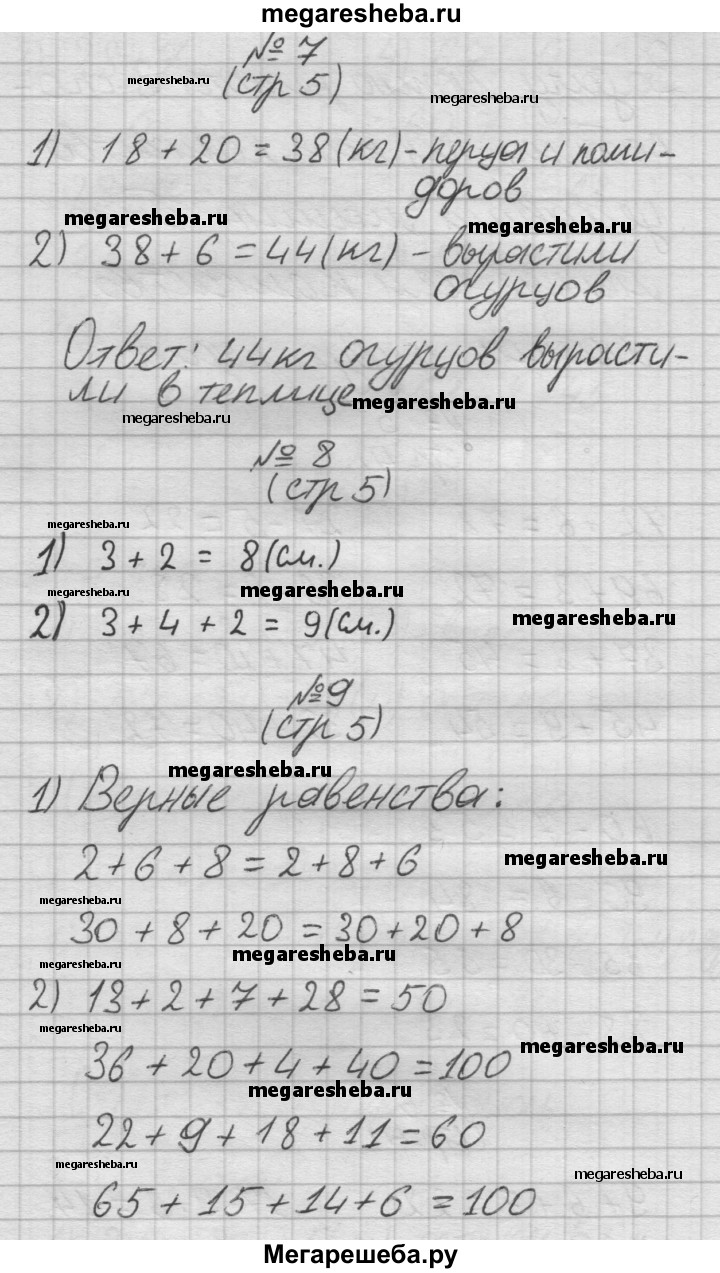 megaresheba.ru
№ 7
megaresheba.ru (стр 5) megaresheba.ru
1) 18 + 20 = 38 (кг) - перца и поми-
доров
megaresheba.ru megaresheba.ru
2) 38 + 6 = 44 (кг) - вырастили
огурцов
Ответ: 44 кг огурцов вырасти-
ли в теплице megaresheba.ru
megaresheba.ru
№ 8
(стр 5)
megaresheba.ru
1) 3 + 2 = 8 (см.)
megaresheba.ru megaresheba.ru
2) 3 + 4 + 2 = 9 (см.) megaresheba.ru
№ 9
(стр 5)
megaresheba.ru
1) Верные равенства:
2 + 6 + 8 = 2 + 8 + 6 megaresheba.ru
megaresheba.ru
30 + 8 + 20 = 30 + 20 + 8
megaresheba.ru megaresheba.ru
2) 13 + 2 + 7 + 28 = 50
megaresheba.ru megaresheba.ru
36 + 20 + 4 + 40 = 100
megaresheba.ru
22 + 9 + 18 + 11 = 60
megaresheba.ru megaresheba.ru
65 + 15 + 14 + 6 = 100
Мегарешеба.ру